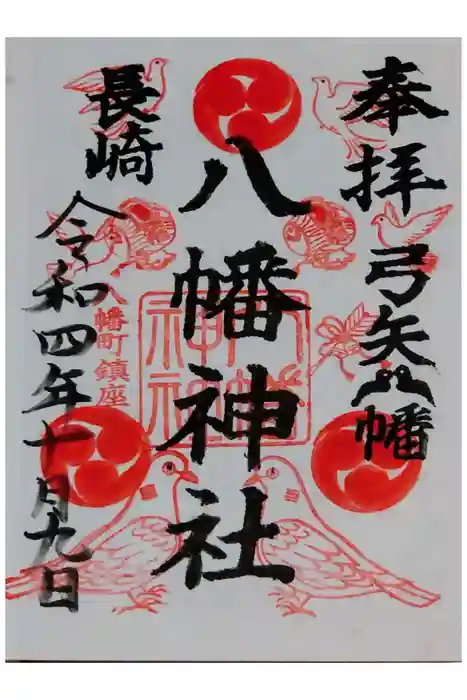 奉拝
弓矢八幡
八幡神社
八幡神社
長崎
八幡町鎮座
令和四年十月九日